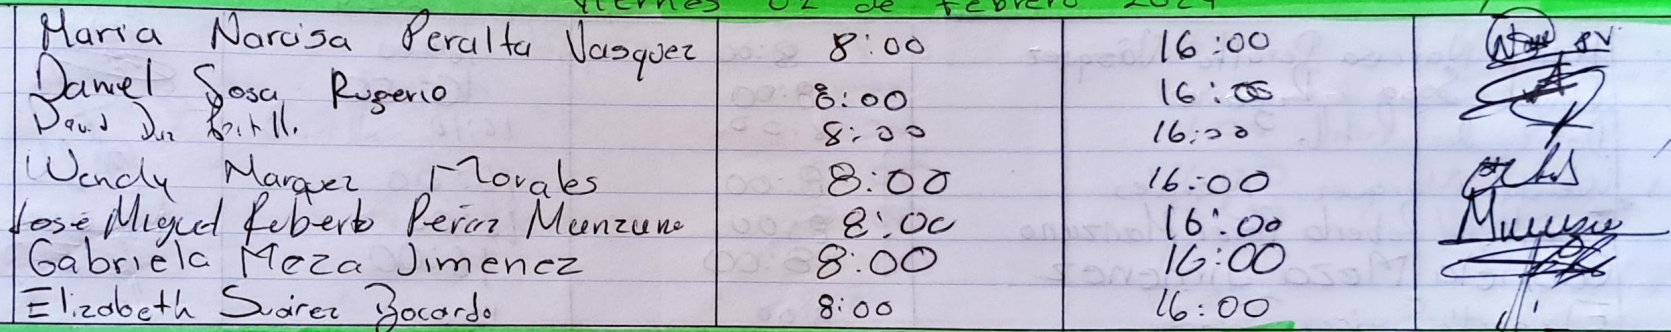 Viernes 02 de Febrero 2024
Maria Narcisa Peralta Vasquez 8:00 16:00
Daniel Sosa Rugerio 8:00 16:00
David 8:00 16:00
Wendy Marquez Morales 8:00 16:00
José Miguel Roberto Peréz Manzano 8:00 16:00
Gabriela Meza Jimenez 8:00 16:00
Elizabeth Suárez Bocardo 8:00 16:00